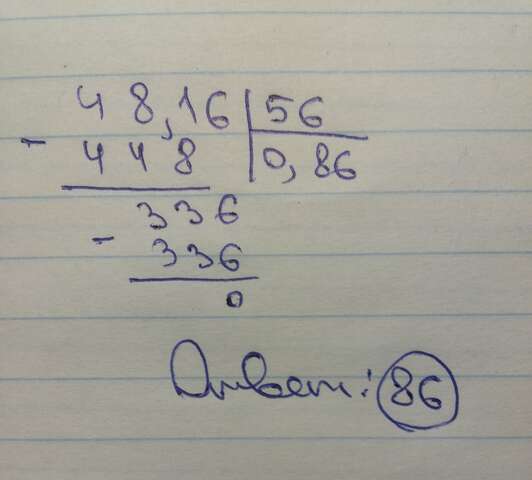 48,16 56
- 448 0,86
336
- 336
0
Ответ: 86